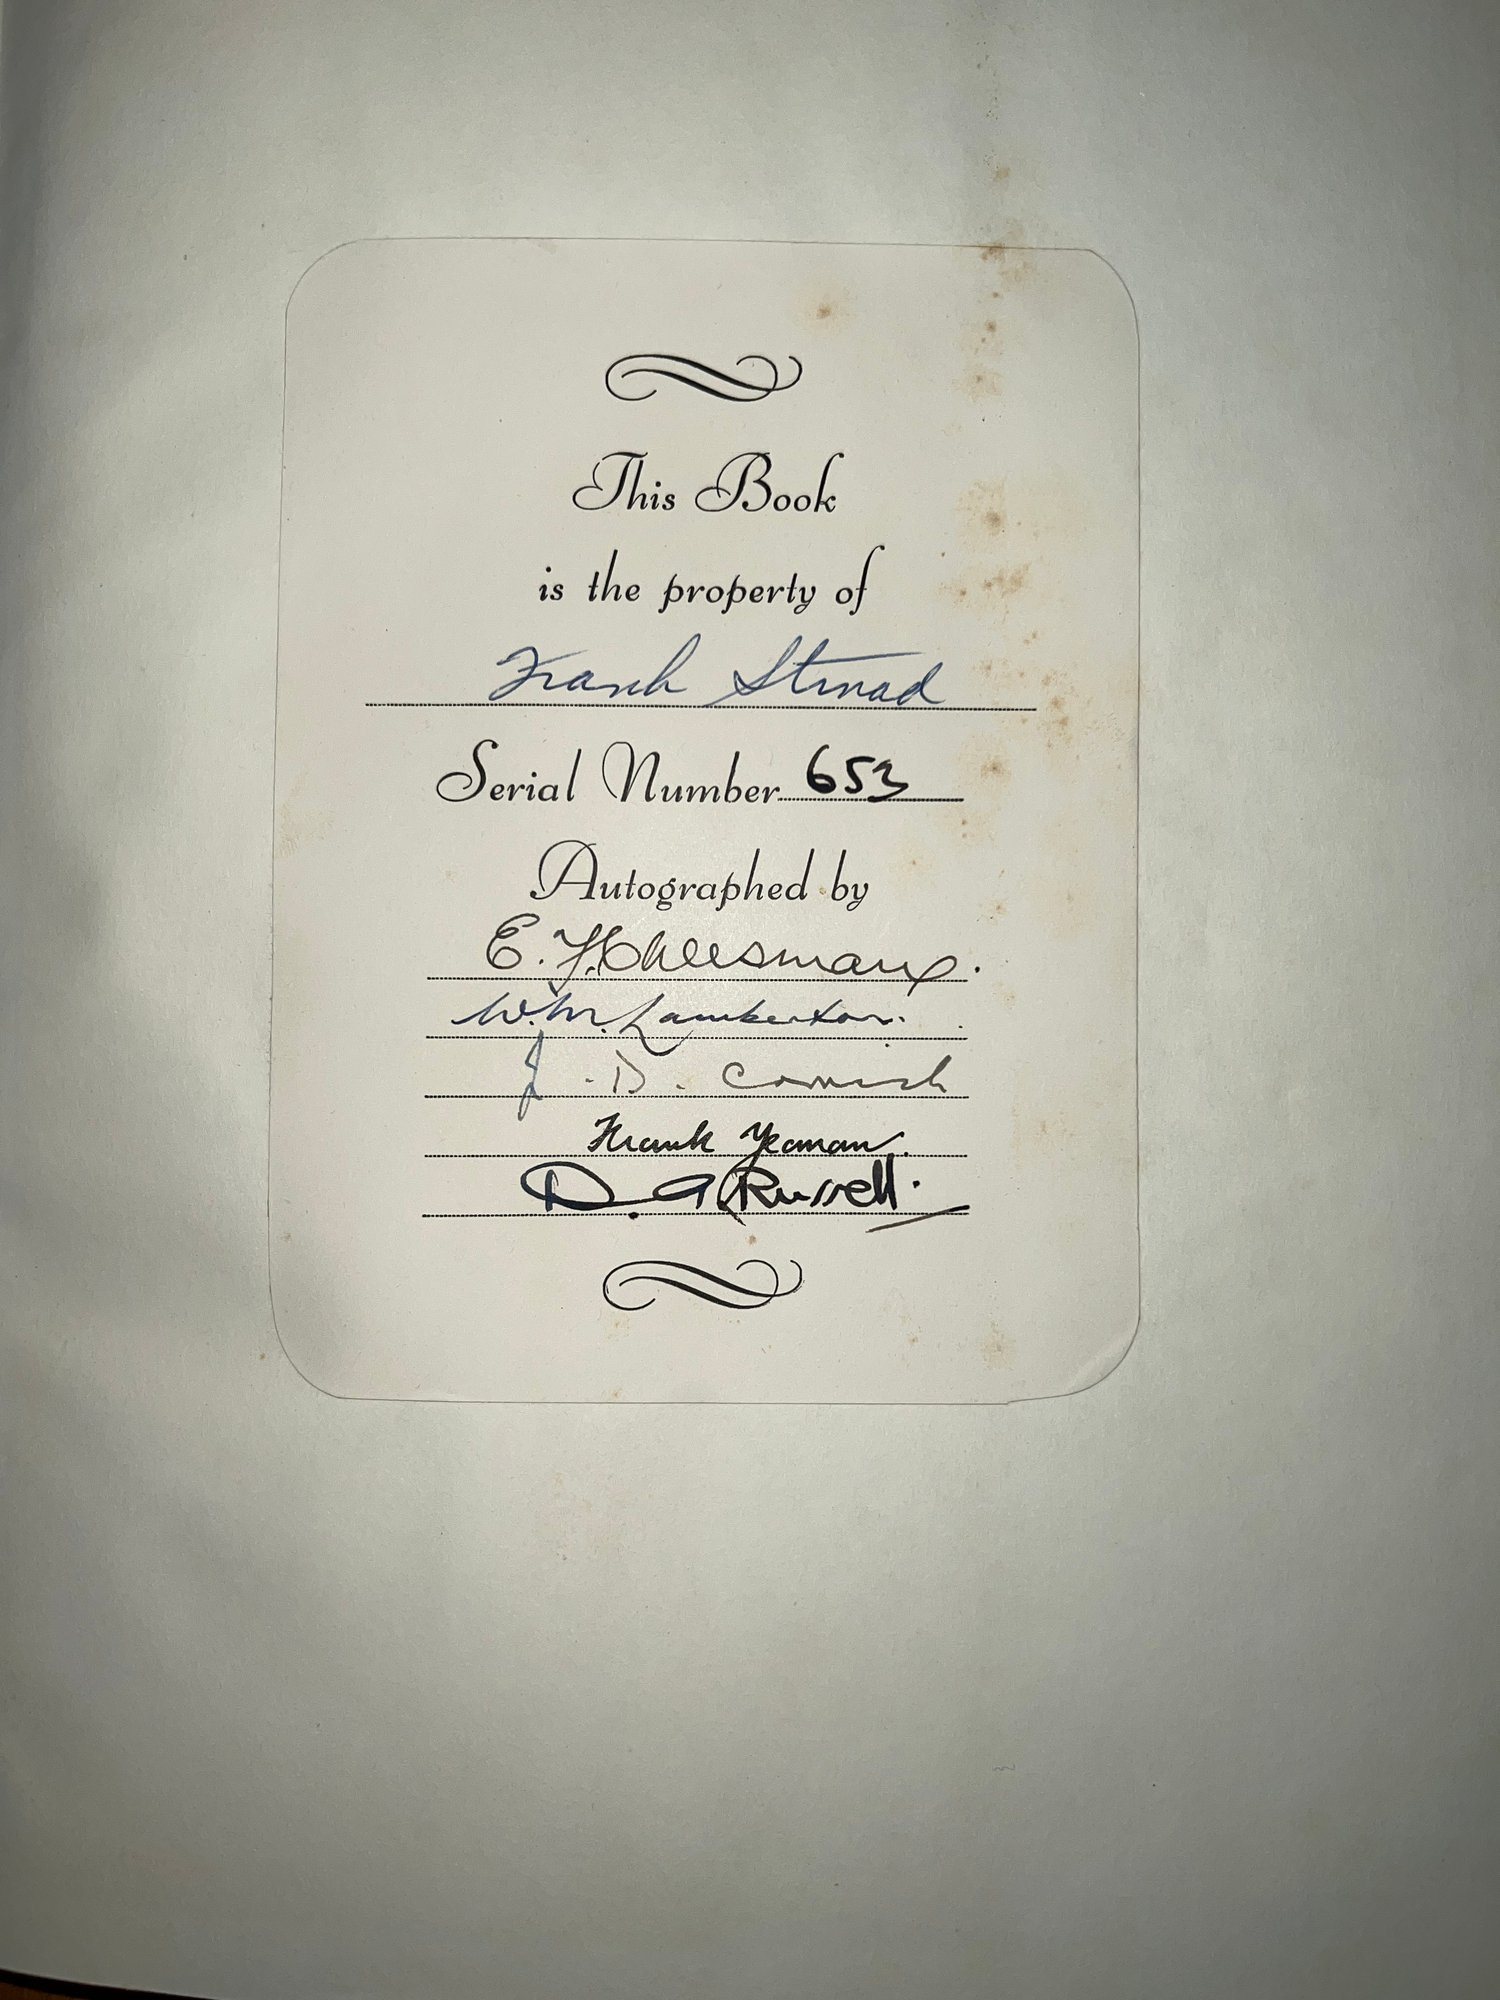 This Book
is the property of
Frank Strnad
Serial Number 653
Autographed by
E. F. Cheesman.
W. M. Lamberton.
J. D. Cornish
Frank Yeoman.
D. A. Russell.